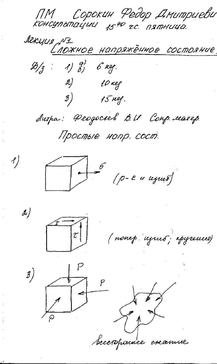 ПМ Сорокин Федор Дмитриевич
консультации 15⁰⁰ чс. пятница.
Лекция №1
Сложное напряжённое состояние.
Д/з: 1) 6 нед.
2) 10 нед
3) 15 нед.
Литра: Феодосьев В.И Сопр. матер.
Простые напр. сост.
1)
σ
(р-с и изгиб)
2)
τ
(попер. изгиб; кручение)
3)
P
P
P
всестороннее сжатие